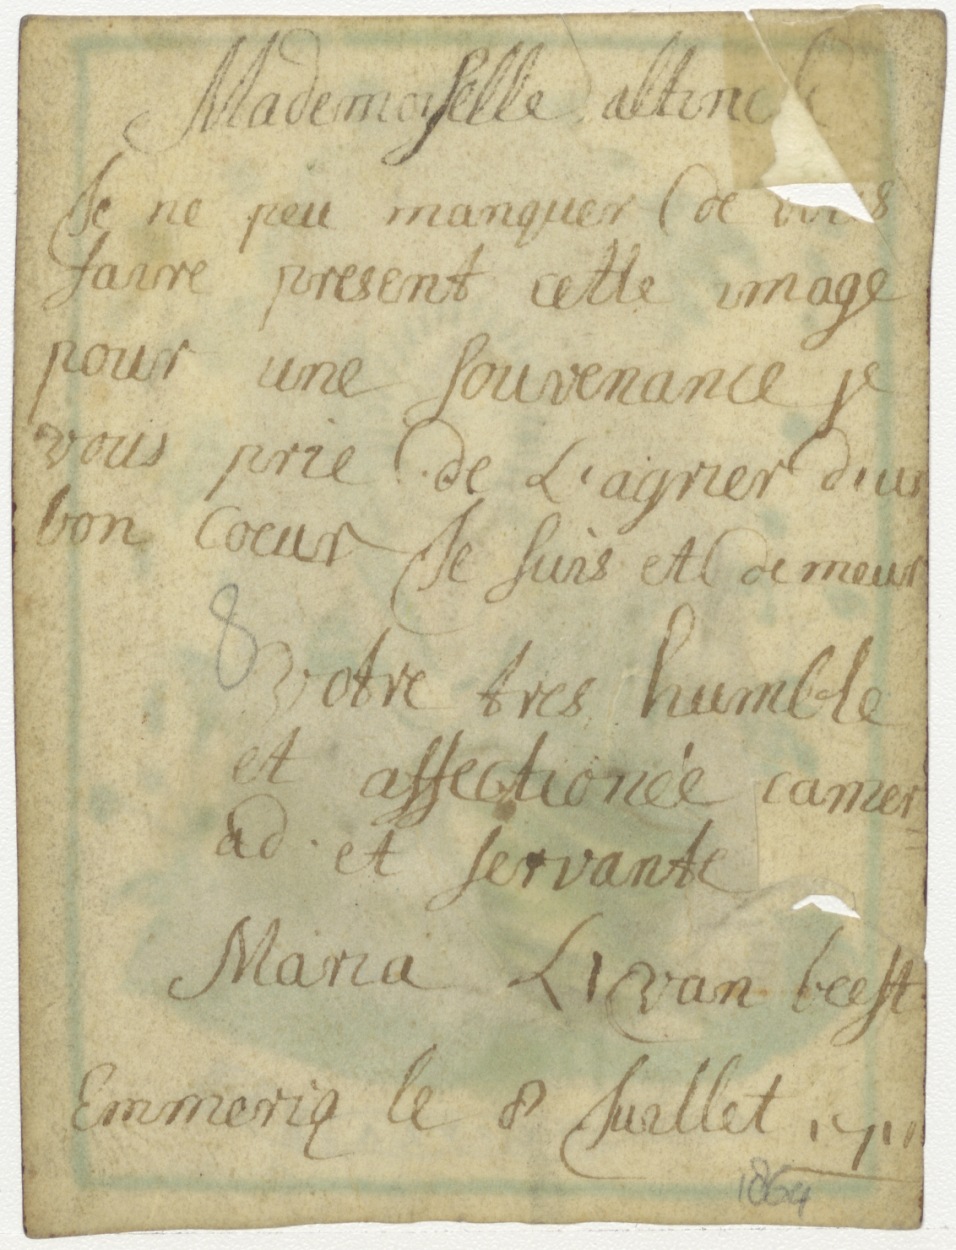 Mademoiselle altinck
Je ne peu manquer de vous
faire present cette image
pour une souvenance je
vous prie de L'agrier d'un
bon Coeur Je suis et demeur
8
votre tres humble
et affectionée camer
ad. et servante
Maria L van beest
Emmeriq le 8 Juillet 1711
1864